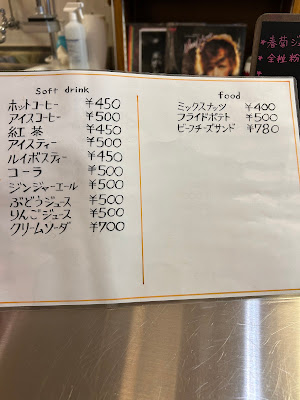 Soft drink
ホットコーヒー ¥450
アイスコーヒー ¥500
紅茶 ¥450
アイスティー ¥500
ルイボスティー ¥450
コーラ ¥500
ジンジャーエール ¥500
ぶどうジュース ¥500
りんごジュース ¥500
クリームソーダ ¥700
food
ミックスナッツ ¥400
フライドポテト ¥500
ビーフチーズサンド ¥780